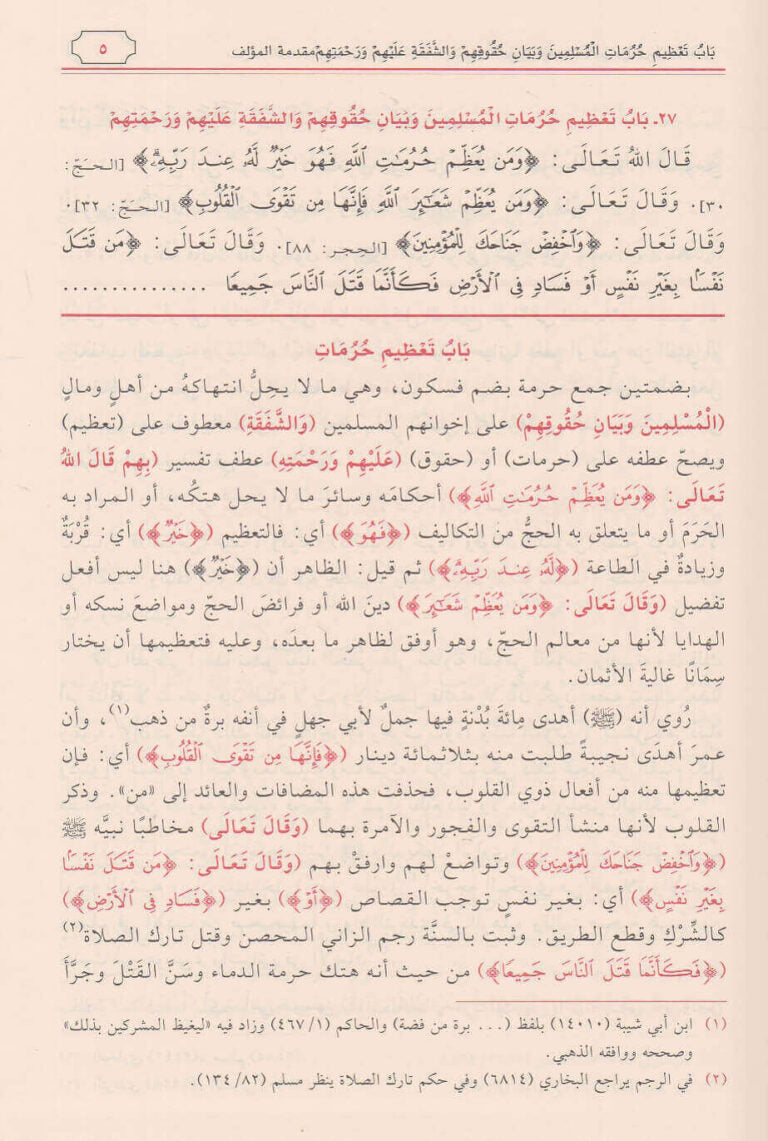 بَابُ تَعْظِيمِ حُرُمَاتِ الْمُسْلِمِينَ وَبَيَانِ حُقُوقِهِمْ وَالشَّفَقَةِ عَلَيْهِمْ وَرَحْمَتِهِمْ مقدمة المؤلف
٥
٢٧. بَابُ تَعْظِيمِ حُرُمَاتِ الْمُسْلِمِينَ وَبَيَانِ حُقُوقِهِمْ وَالشَّفَقَةِ عَلَيْهِمْ وَرَحْمَتِهِمْ
قَالَ اللهُ تَعَالَى: ﴿وَمَن يُعَظِّمْ حُرُمَٰتِ ٱللَّهِ فَهُوَ خَيْرٌ لَّهُۥ عِندَ رَبِّهِۦ﴾ [الحَجّ:
٣٠]. وَقَالَ تَعَالَى: ﴿وَمَن يُعَظِّمْ شَعَٰٓئِرَ ٱللَّهِ فَإِنَّهَا مِن تَقْوَى ٱلْقُلُوبِ﴾ [الحَجّ: ٣٢].
وَقَالَ تَعَالَى: ﴿وَٱخْفِضْ جَنَاحَكَ لِلْمُؤْمِنِينَ﴾ [الحِجر: ٨٨]. وَقَالَ تَعَالَى: ﴿مَن قَتَلَ
نَفْسًۢا بِغَيْرِ نَفْسٍ أَوْ فَسَادٍ فِى ٱلْأَرْضِ فَكَأَنَّمَا قَتَلَ ٱلنَّاسَ جَمِيعًا ...............
بَابُ تَعْظِيمِ حُرُمَاتِ
بضمتين جمع حرمة بضم فسكون، وهي ما لا يحِلُّ انتهاكهُ من أهلٍ ومالٍ
(الْمُسْلِمِينَ وَبَيَانِ حُقُوقِهِمْ) على إخوانهم المسلمين (وَالشَّفَقَةِ) معطوف على (تعظيم)
ويصحّ عطفه على (حرمات) أو (حقوق) (عَلَيْهِمْ وَرَحْمَتِهِ) عطف تفسير (بِهِمْ قَالَ اللهُ
تَعَالَى: ﴿وَمَن يُعَظِّمْ حُرُمَٰتِ ٱللَّهِ﴾) أحكامَه وسائرَ ما لا يحل هتكُه، أو المراد به
الحَرَمَ أو ما يتعلق به الحجُّ من التكاليف (﴿فَهُوَ﴾) أي: فالتعظيم (﴿خَيْرٌ﴾) أي: قُرْبَةٌ
وزيادةٌ في الطاعة (﴿لَّهُۥ عِندَ رَبِّهِۦ﴾) ثم قيل: الظاهر أن (﴿خَيْرٌ﴾) هنا ليس أفعل
تفضيل (وَقَالَ تَعَالَى: ﴿وَمَن يُعَظِّمْ شَعَٰٓئِرَ﴾) دينَ الله أو فرائضَ الحجّ ومواضعَ نسكه أو
الهدايا لأنها من معالم الحجّ، وهو أوفق لظاهر ما بعدَه، وعليه فتعظيمها أن يختار
سِمَانًا غاليةَ الأثمان.
رُوي أنه (ﷺ) أهدى مِائةَ بُدْنةٍ فيها جملٌ لأبي جهلٍ في أنفه برةٌ من ذهب(١)، وأن
عمرَ أهدَى نجيبةً طلبت منه بثلاثمائة دينار (﴿فَإِنَّهَا مِن تَقْوَى ٱلْقُلُوبِ﴾) أي: فإن
تعظيمها منه من أفعال ذوي القلوب، فحذفت هذه المضافات والعائد إلى «من». وذكر
القلوب لأنها منشأ التقوى والفجور والآمرة بهما (وَقَالَ تَعَالَى) مخاطبًا نبيَّه ﷺ
(﴿وَٱخْفِضْ جَنَاحَكَ لِلْمُؤْمِنِينَ﴾) وتواضعْ لهم وارفقْ بهم (وَقَالَ تَعَالَى: ﴿مَن قَتَلَ نَفْسًۢا
بِغَيْرِ نَفْسٍ﴾) أي: بغير نفسٍ توجب القصاص (﴿أَوْ﴾) بغير (﴿فَسَادٍ فِى ٱلْأَرْضِ﴾)
كالشِّرْكِ وقطع الطريق. وثبت بالسنَّة رجم الزاني المحصن وقتل تارك الصلاة(٢)
(﴿فَكَأَنَّمَا قَتَلَ ٱلنَّاسَ جَمِيعًا﴾) من حيث أنه هتك حرمة الدماء وسَنَّ القَتْلَ وجَرَّأَ
(١) ابن أبي شيبة (١٤٠١٠) بلفظ (... برة من فضة) والحاكم (١/ ٤٦٧) وزاد فيه «ليغيظ المشركين بذلك»
وصححه ووافقه الذهبي.
(٢) في الرجم يراجع البخاري (٦٨١٤) وفي حكم تارك الصلاة ينظر مسلم (٨٢/ ١٣٤).